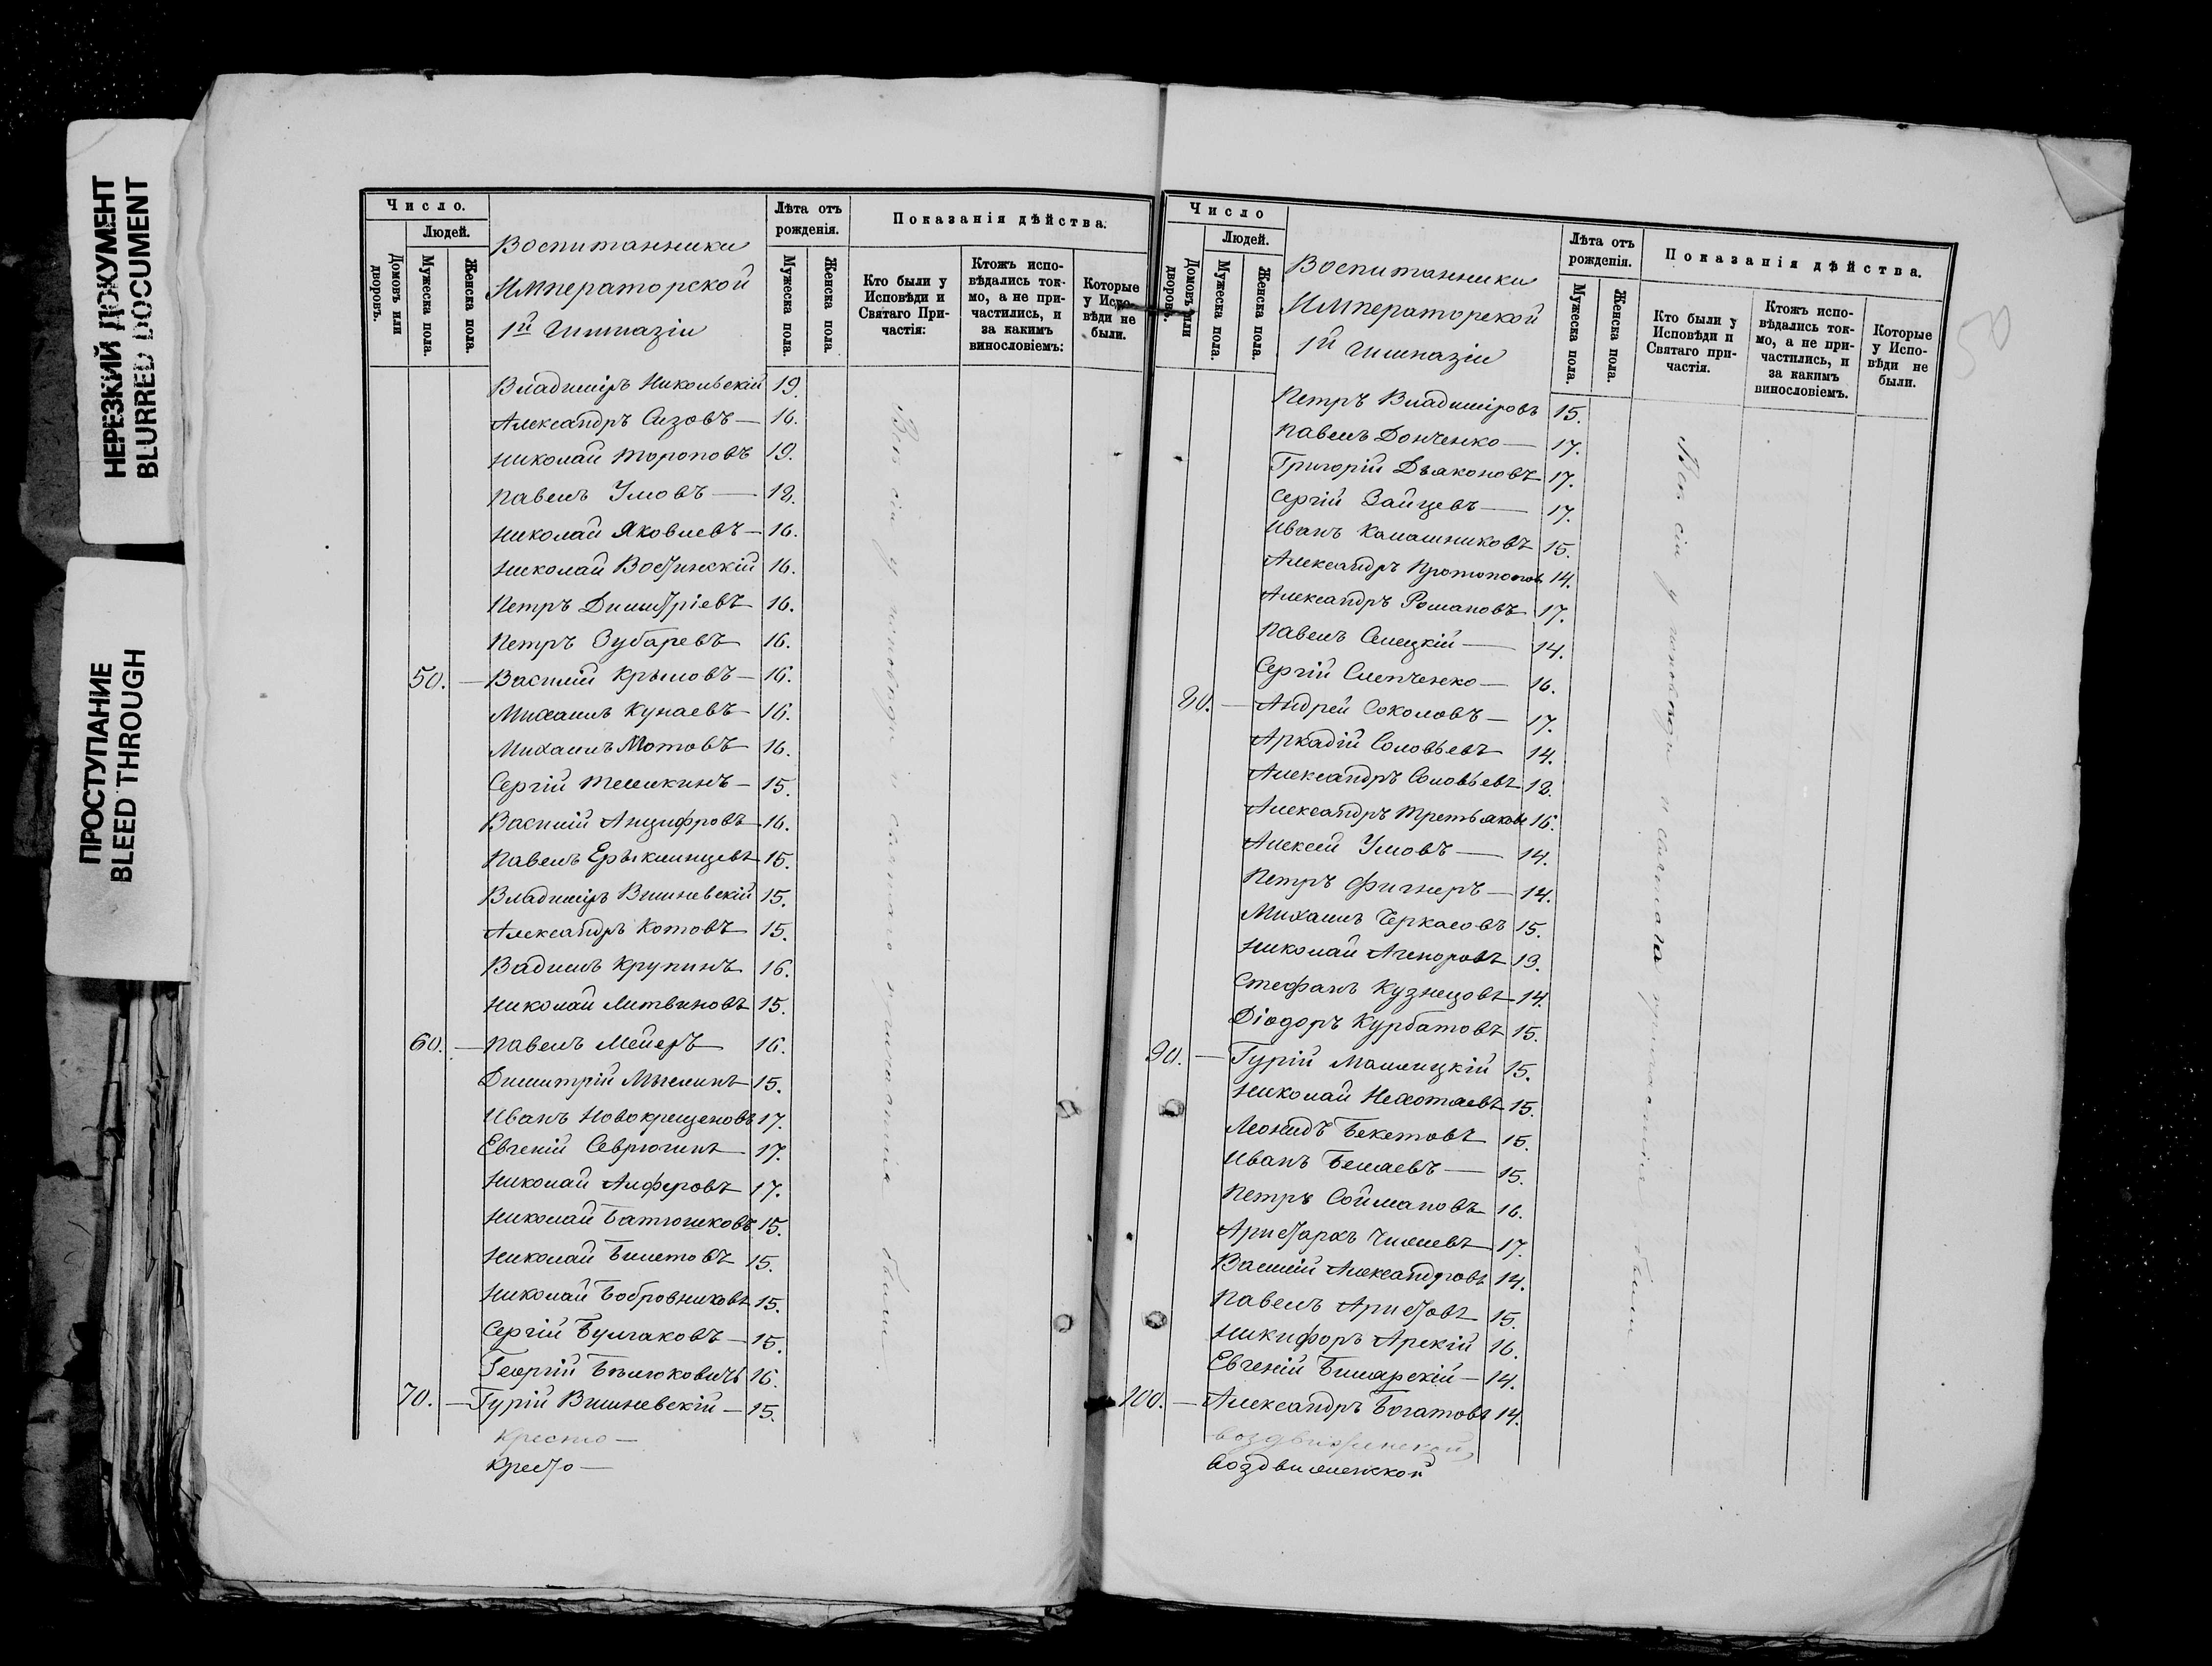 НЕРЕЗКИЙ ДОКУМЕНТ
BLURRED DOCUMENT
ПРОСТУПАНИЕ
BLEED THROUGH
Число.
Людей.
Домовъ или дворовъ.
Мужеска пола.
Женска пола.
Воспитанники
Императорской
1й Гимназіи
Лѣта отъ рожденія.
Мужеска пола.
Женска пола.
Показанія дѣйства.
Кто были у Исповѣди и Святаго Причастія:
Ктожъ исповѣдались токмо, а не причастились, и за какимъ винословіемъ:
Которые у Исповѣди не были.
Владиміръ Никольскій 19.
Александръ Сизовъ — 16.
Николай Тороповъ 19.
Павелъ Умовъ — 18.
Николай Яковлевъ — 16.
Николай 16.
Петръ Димитріевъ 16.
Петръ Зубаревъ 16.
50. — Василій Крыловъ — 16.
Михаилъ Кунаевъ — 16.
Михаилъ Мотовъ 16.
Сергій — 15.
Василій Анцифровъ 16.
Павелъ Ерыклинцевъ 15.
Владиміръ Вишневскій 15.
Александръ Котовъ 15.
Вадимъ Крупинъ 16.
Николай Литвиновъ 15.
60. — Павелъ Мейеръ 16.
Димитрій 15.
Иванъ Новокрещеновъ 17.
Евгеній Севрюгинъ 17.
Николай Алферовъ 17.
Николай Батюшковъ 15.
Николай Билетовъ 15.
Николай Бобровниковъ 15.
Сергій Булгаковъ — 15.
Георгій 16.
70. — Гурій Вишневскій — 15.
Кресто —
Кресто —
Всѣ сіи у исповѣди и святаго причастія были
Число
Людей.
Домовъ или дворовъ.
Мужеска пола.
Женска пола.
Воспитанники
Императорской
1й Гимназіи
Лѣта отъ рожденія.
Мужеска пола.
Женска пола.
Показанія дѣйства.
Кто были у Исповѣди и Святаго причастія.
Ктожъ исповѣдались токмо, а не причастились, и за какимъ винословіемъ.
Которые у Исповѣди не были.
50
Петръ Владиміровъ 15.
Павелъ Донченко — 17.
Григорій Дьяконовъ 17.
Сергій Зайцевъ — 17.
Иванъ Калашниковъ 15.
Александръ Протопоповъ 14.
Александръ Романовъ 17.
Павелъ Селецкій — 14.
Сергій Слепченко — 16.
80. — Андрей Соколовъ — 17.
Аркадій Соловьевъ 14.
Александръ Соловьевъ 18.
Александръ Третьяковъ 16.
Алексей Умовъ — 14.
Петръ Фигнеръ — 14.
Михаилъ Черкасовъ 15.
Николай Агеноровъ 19.
Стефанъ Кузнецовъ 14.
Діодоръ Курбатовъ 15.
90. — Гурій 15.
Николай 15.
Леонидъ Бекетовъ 15.
Иванъ — 15.
Петръ Соймановъ 16.
Аристархъ 17.
Василій Александровъ 14.
Павелъ Аристовъ 15.
Никифоръ Арскій 16.
Евгеній Билярскій — 14.
100. — Александръ Богатовъ 14.
воздвиженской
воздвиженской
Всѣ сіи у исповѣди и святаго причастія были